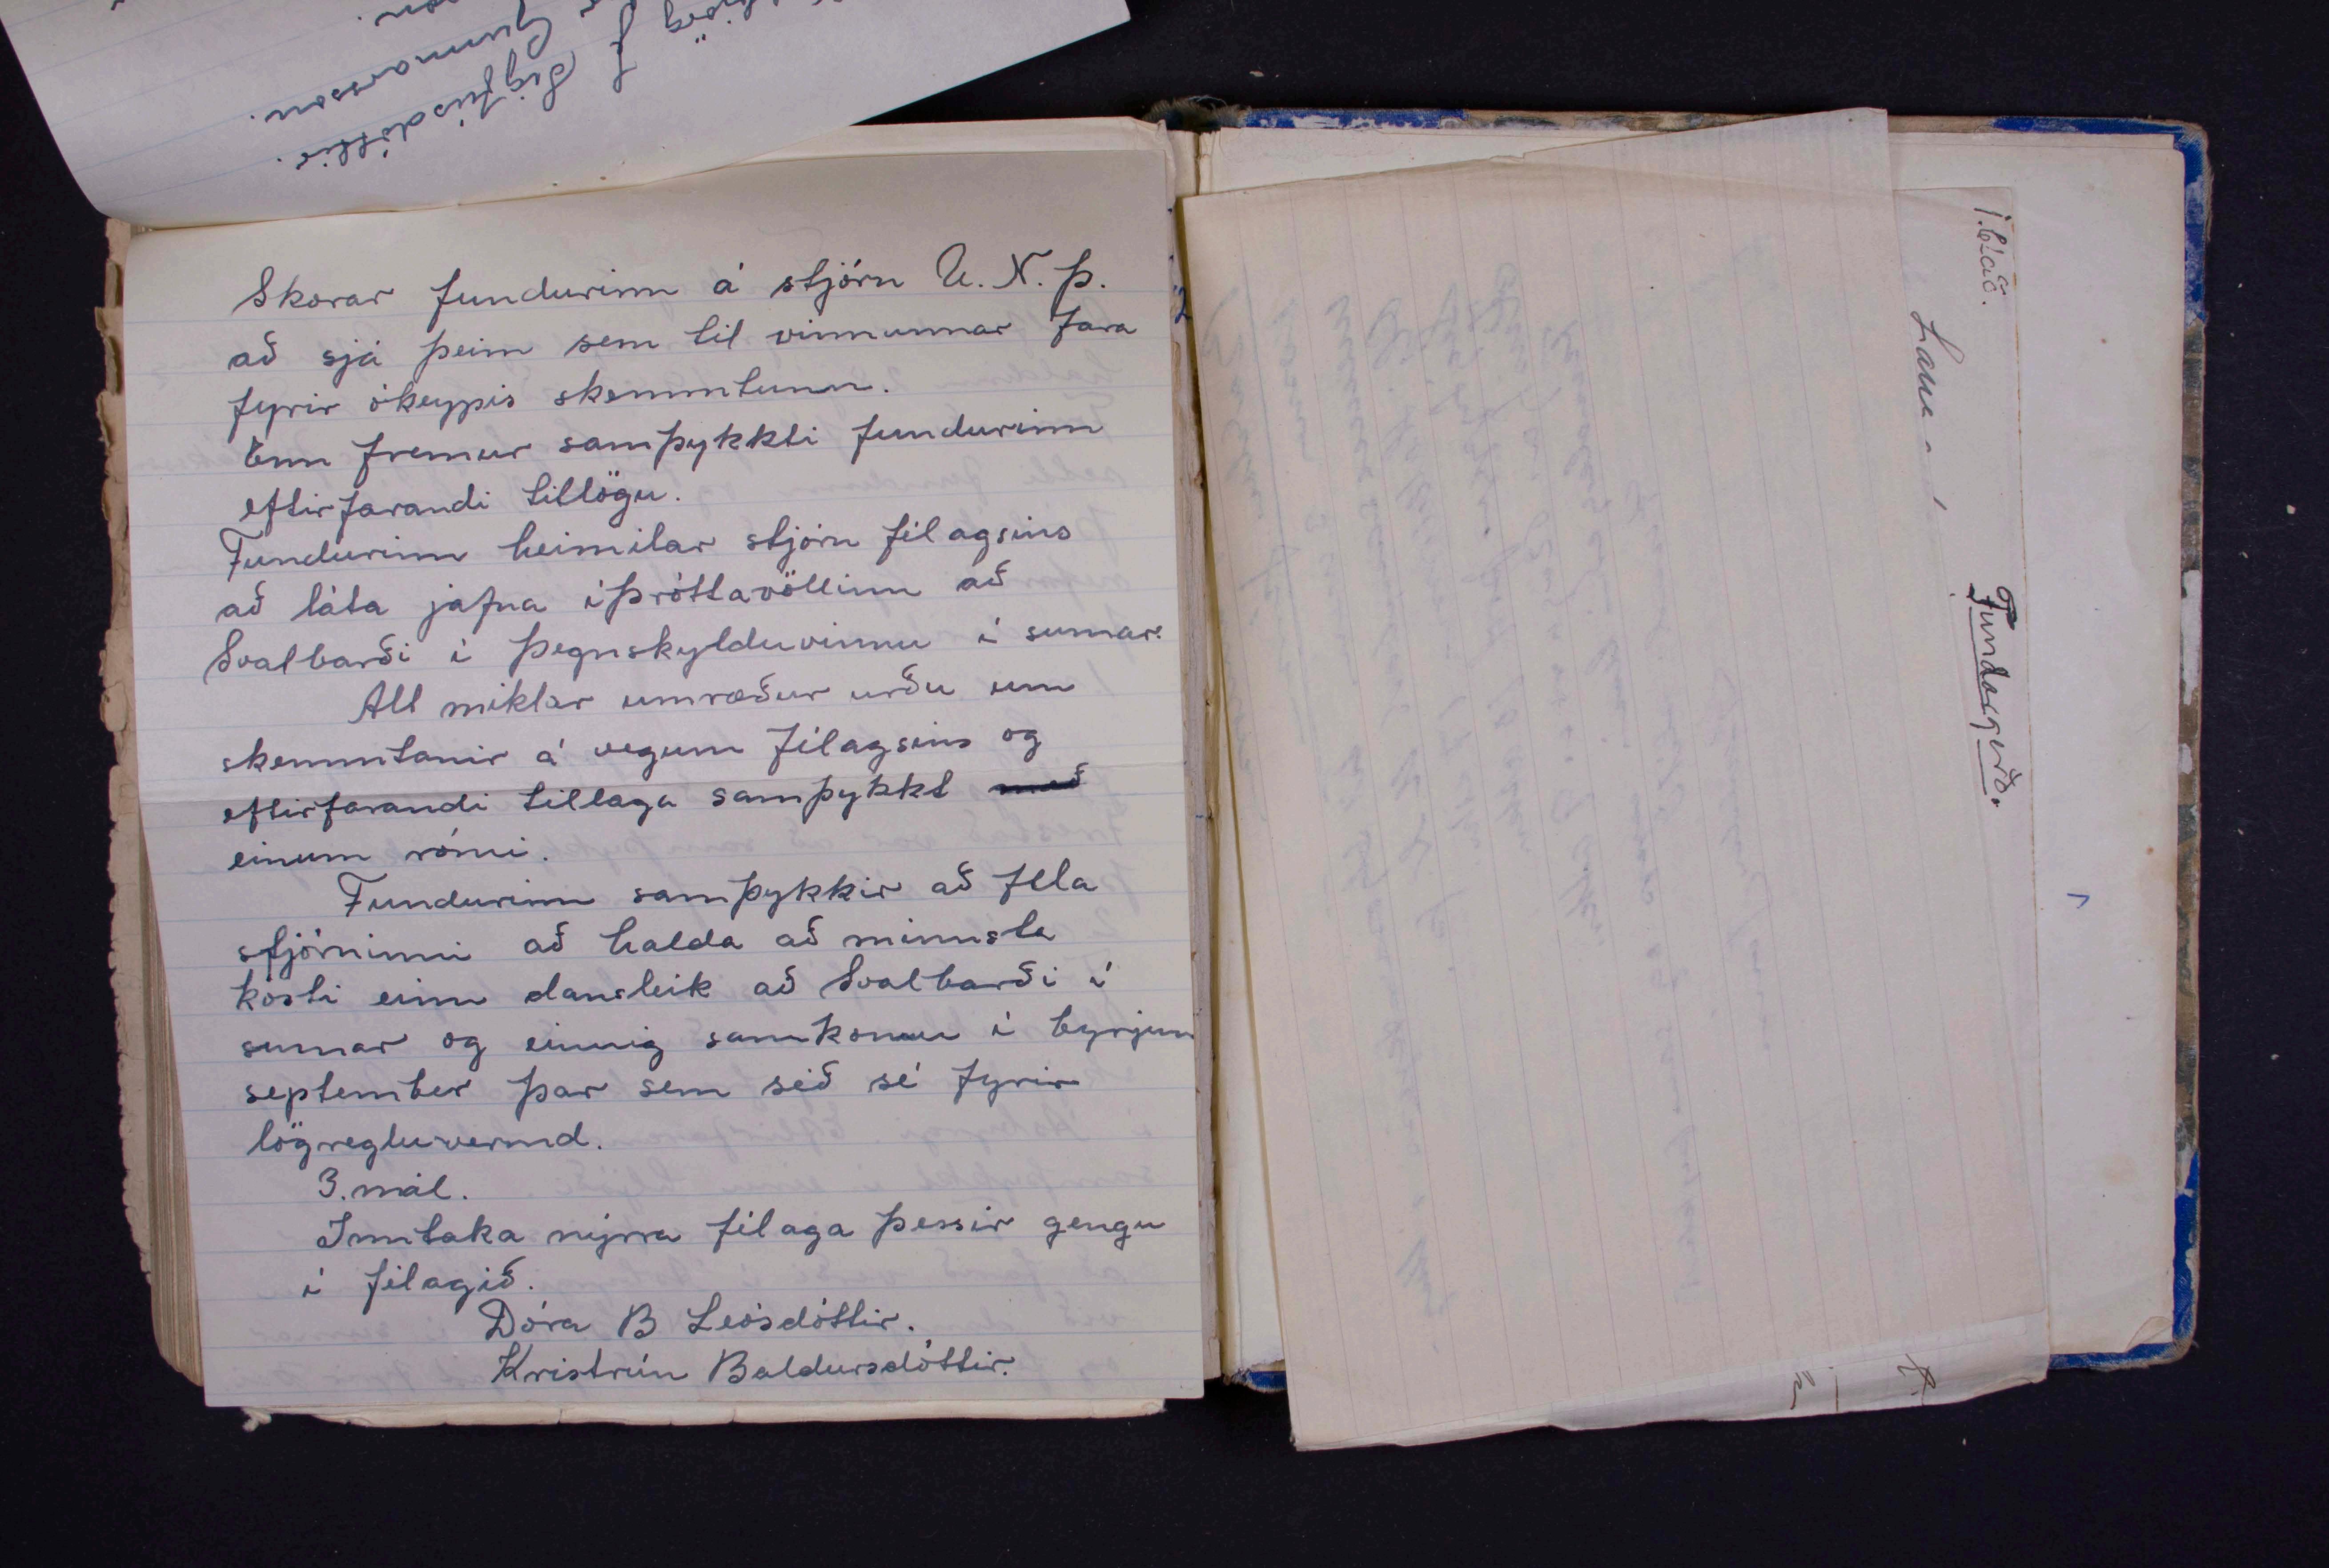 Sigfúsdóttir.
Gunnarsson.
Skorar fundurinn á stjórn U.N.Þ.
að sjá þeim sem til vinnunnar fara
fyrir ókeypis skemmtunn.
Enn fremur samþykkti fundurinn
eftirfarandi tillögu.
Fundurinn heimilar stjórn félagsins
að láta jafna íþróttavöllinn að
Svalbarði í þegnskylduvinnu í sumar.
All miklar umræður urðu um
skemmtanir á vegum félagsins og
eftirfarandi tillaga samþykkt með
einum rómi.
Fundurinn samþykkir að fela
stjórninni að halda að minnsta
kosti einn dansleik að Svalbarði í
sumar og einnig samkomu í byrjun
september þar sem séð sé fyrir
lögregluvernd.
3. mál.
Inntaka nýrra félaga þessir gengu
í félagið.
Dóra B Leósdóttir.
Kristrún Baldursdóttir.
1. blað.
Fundargerð.